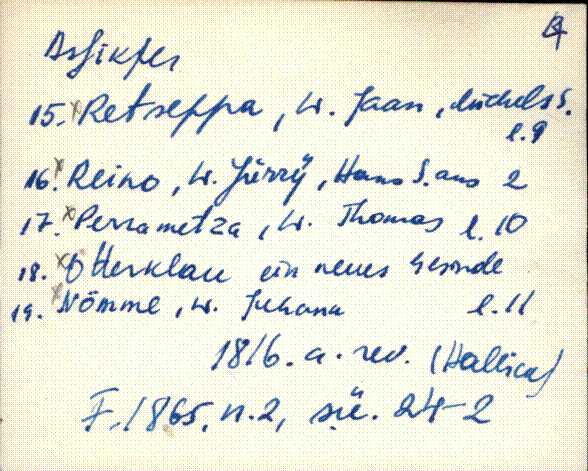 4
Assikfer
15. x Retseppa, W. Jaan, Michels S.
l. 9
16. x Reino, W. Jürry, Hans S. aus 2
17. x Perrametza, W. Thomas l. 10
18. x Otterklau ein neues Gesinde
19. x Nömme, W. Juhann l. 11
1816. a. rev. (Hallica)
F. 1865, n. 2, sü. 24-2